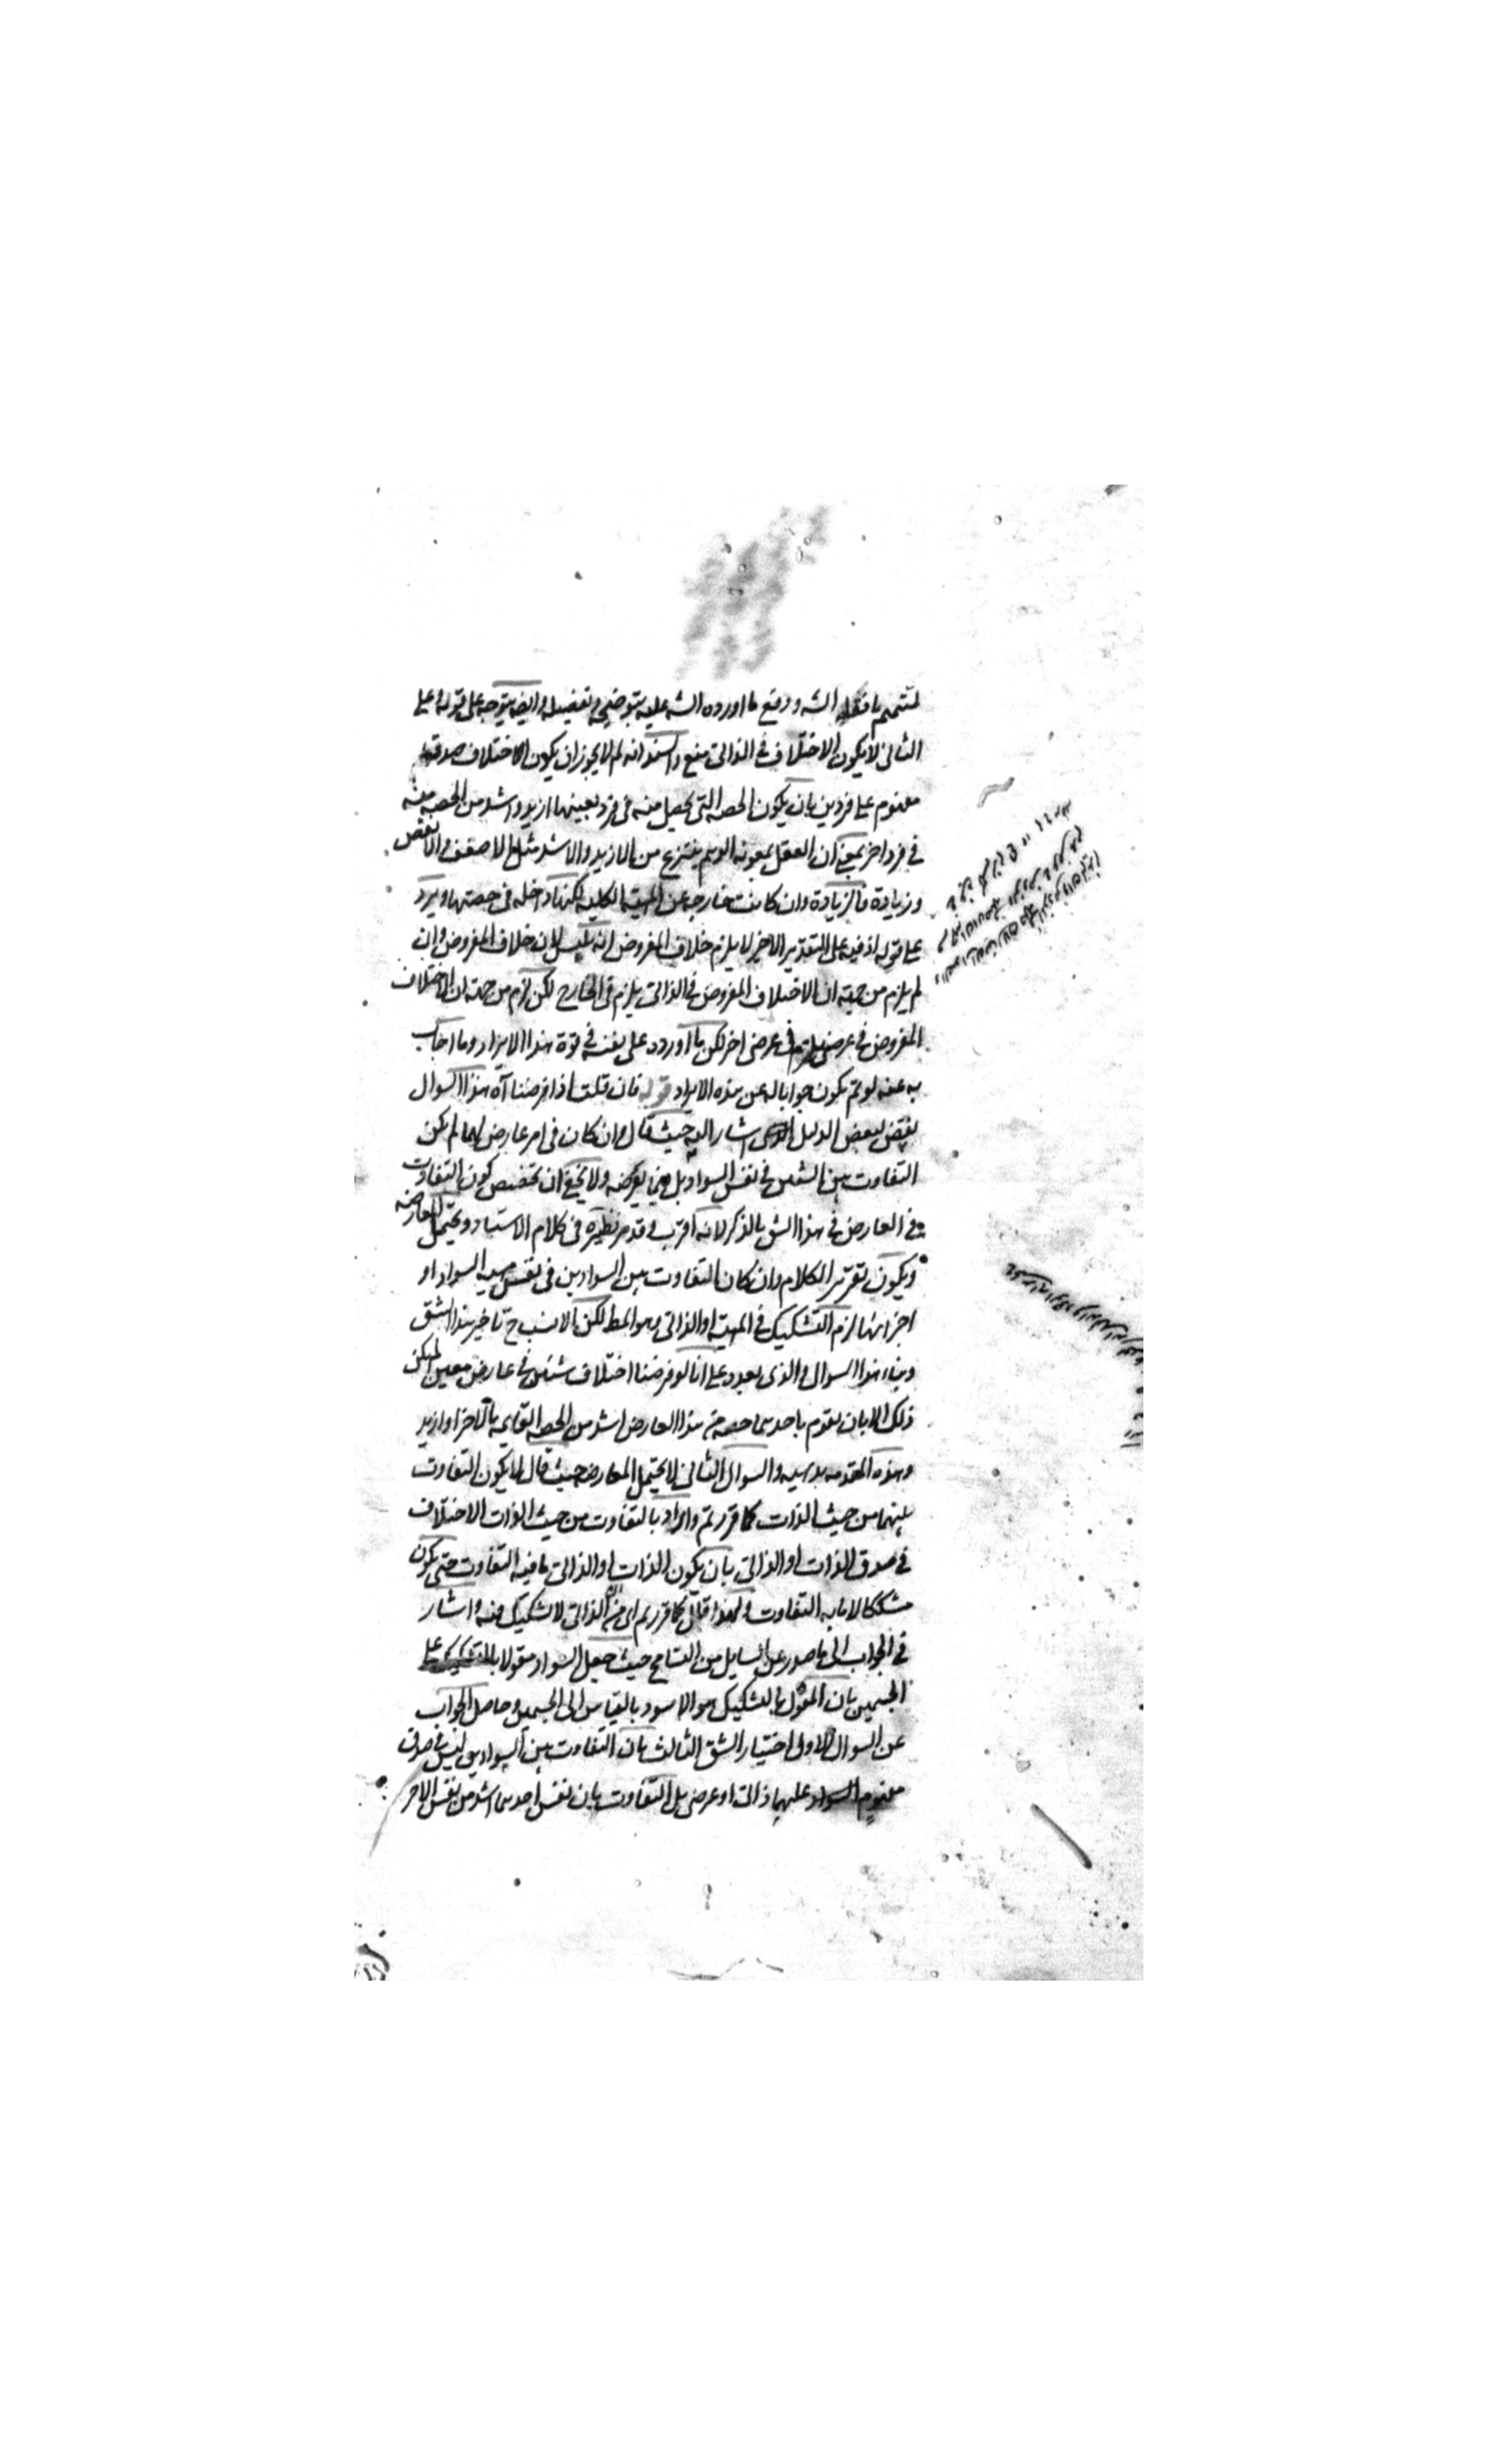 لتتميم ما نقله الشه ودفع ما اورده الشه عليه بتوضيح وتفصيل وايضه يتوجه على قوله وعلى
الثانى لا يكون الاختلاف فى الذاتى منع والسند انه لم لا يجوز ان يكون الاختلاف صدق
مفهوم على فردين بان يكون الحصه التى يحصل منه فى فرد بعينها ازيد واشد من الحصه منه
فى فرد اخر بمعنى ان العقل بمعونه الوهم ينتزع من الازيد والاشد مثل الاضعف والانقص
وزيادة فالزيادة وان كانت خارجه عن المهية الكليه لكنها داخله فى حصتها ويرد
على قوله اذ فيه على التقدير الاخير لا يلزم خلاف المفروض انه ليس لان خلاف المفروض وان
لم يلزم من جهته ان الاختلاف المفروض فى الذاتى يلزم فى الخارج لكن لزم من جهته ان الاختلاف
المفروض فى عرضى يلزم فى عرضى اخر لكن ما اورده على نفسه فى قوة هذا الايراد وما اجاب
به عنه لو تم يكون جوابا له عن هذه الايراد قوله فان قلت اذا فرضنا آه هذا السوال
نقض لبعض الدليل الذى اشار اليه حيث قال وان كان فى امر عارض لهما لم يكن
التفاوت بين الشيئين فى نفس السواد بل فيما يعرضه ولا يخفى ان تخصيص كون التفاوت
فى العارض فى هذا الشق بالذكر لانه اقرب وقد مر نظيره فى كلام الاستاد ويحتمل المعارضه
ويكون تقرير الكلام وان كان التفاوت بين السوادين فى نفس مهيه السواد او
اجزائها لزم التشكيك فى المهية او الذاتى وهو المط لكن الانسب ح تاخير هذا الشق
وبناء هذا السوال والذى بعده على انا لو فرضنا اختلاف شيئين فى عارض معين لم يكن
ذلك الا بان يقوم باحدهما حصه من هذا العارض اشد من الحصه القايمه بالاخر او ازيد
وهذه المقدمه بديهيه والسوال الثانى لا يحتمل المعارضه حيث قال لا يكون التفاوت
بينهما من حيث الذات كما قررتم والمراد بالتفاوت من حيث الذات الاختلاف
فى صدق الذات او الذاتى بان يكون الذات او الذاتى ما فيه التفاوت حتى يكون
مشككا لا ما به التفاوت ولهذا قال كما قررتم اى من ان الذاتى لا تشكيك فيه واشار
فى الجواب الى ما صدر عن السايل من التسامح حيث جعل السواد مقولا بالتشكيك على
الجسمين بان المقول بالتشكيك هو الاسود بالقياس الى الجسمين وحاصل الجواب
عن السوال الاول اختيار الشق الثالث بان التفاوت بين السوادين ليس فى صدق
مفهوم السواد عليهما ذاتى او عرضى بل التفاوت بان نفس احدهما اشد من نفس الاخر